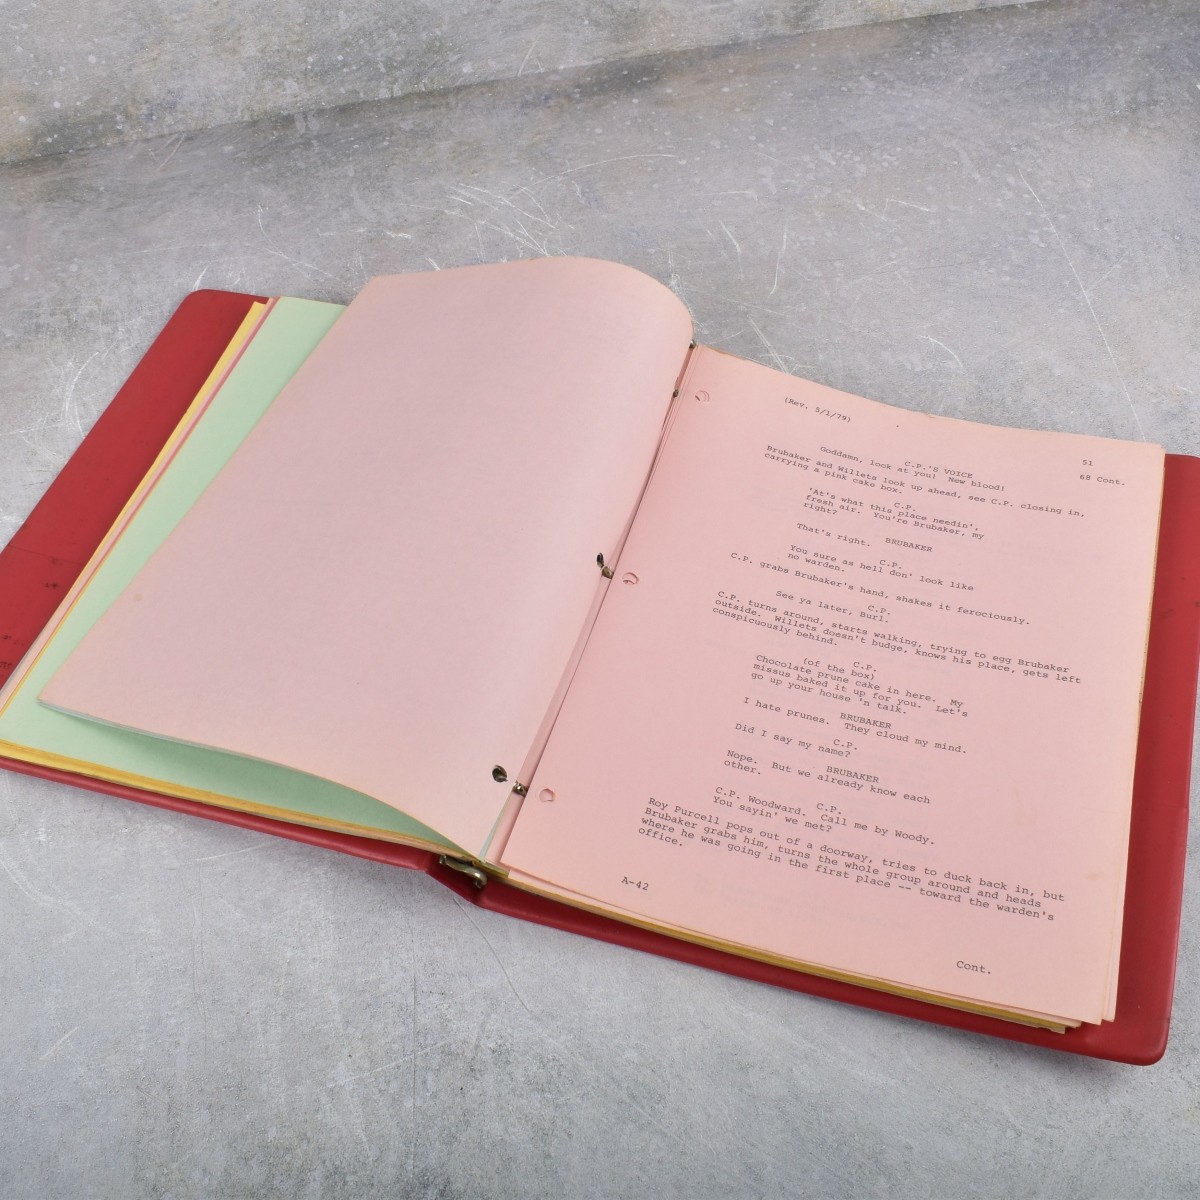 (Rev. 5/1/79)
51
68 Cont.
C.P.'S VOICE
Goddamn, look at you! New blood!
Brubaker and Willets look up ahead, see C.P. closing in,
carrying a pink cake box.
C.P.
'At's what this place needin',
fresh air. You're Brubaker, my
right?
BRUBAKER
That's right.
C.P.
You sure as hell don' look like
no warden.
C.P. grabs Brubaker's hand, shakes it ferociously.
C.P.
See ya later, Burl.
C.P. turns around, starts walking, trying to egg Brubaker
outside. Willets doesn't budge, knows his place, gets left
conspicuously behind.
C.P.
(of the box)
Chocolate prune cake in here. My
missus baked it up for you. Let's
go up your house 'n talk.
BRUBAKER
I hate prunes. They cloud my mind.
C.P.
Did I say my name?
BRUBAKER
Nope. But we already know each
other.
C.P.
C.P. Woodward. Call me by Woody.
You sayin' we met?
Roy Purcell pops out of a doorway, tries to duck back in, but
Brubaker grabs him, turns the whole group around and heads
where he was going in the first place -- toward the warden's
office.
A-42
Cont.